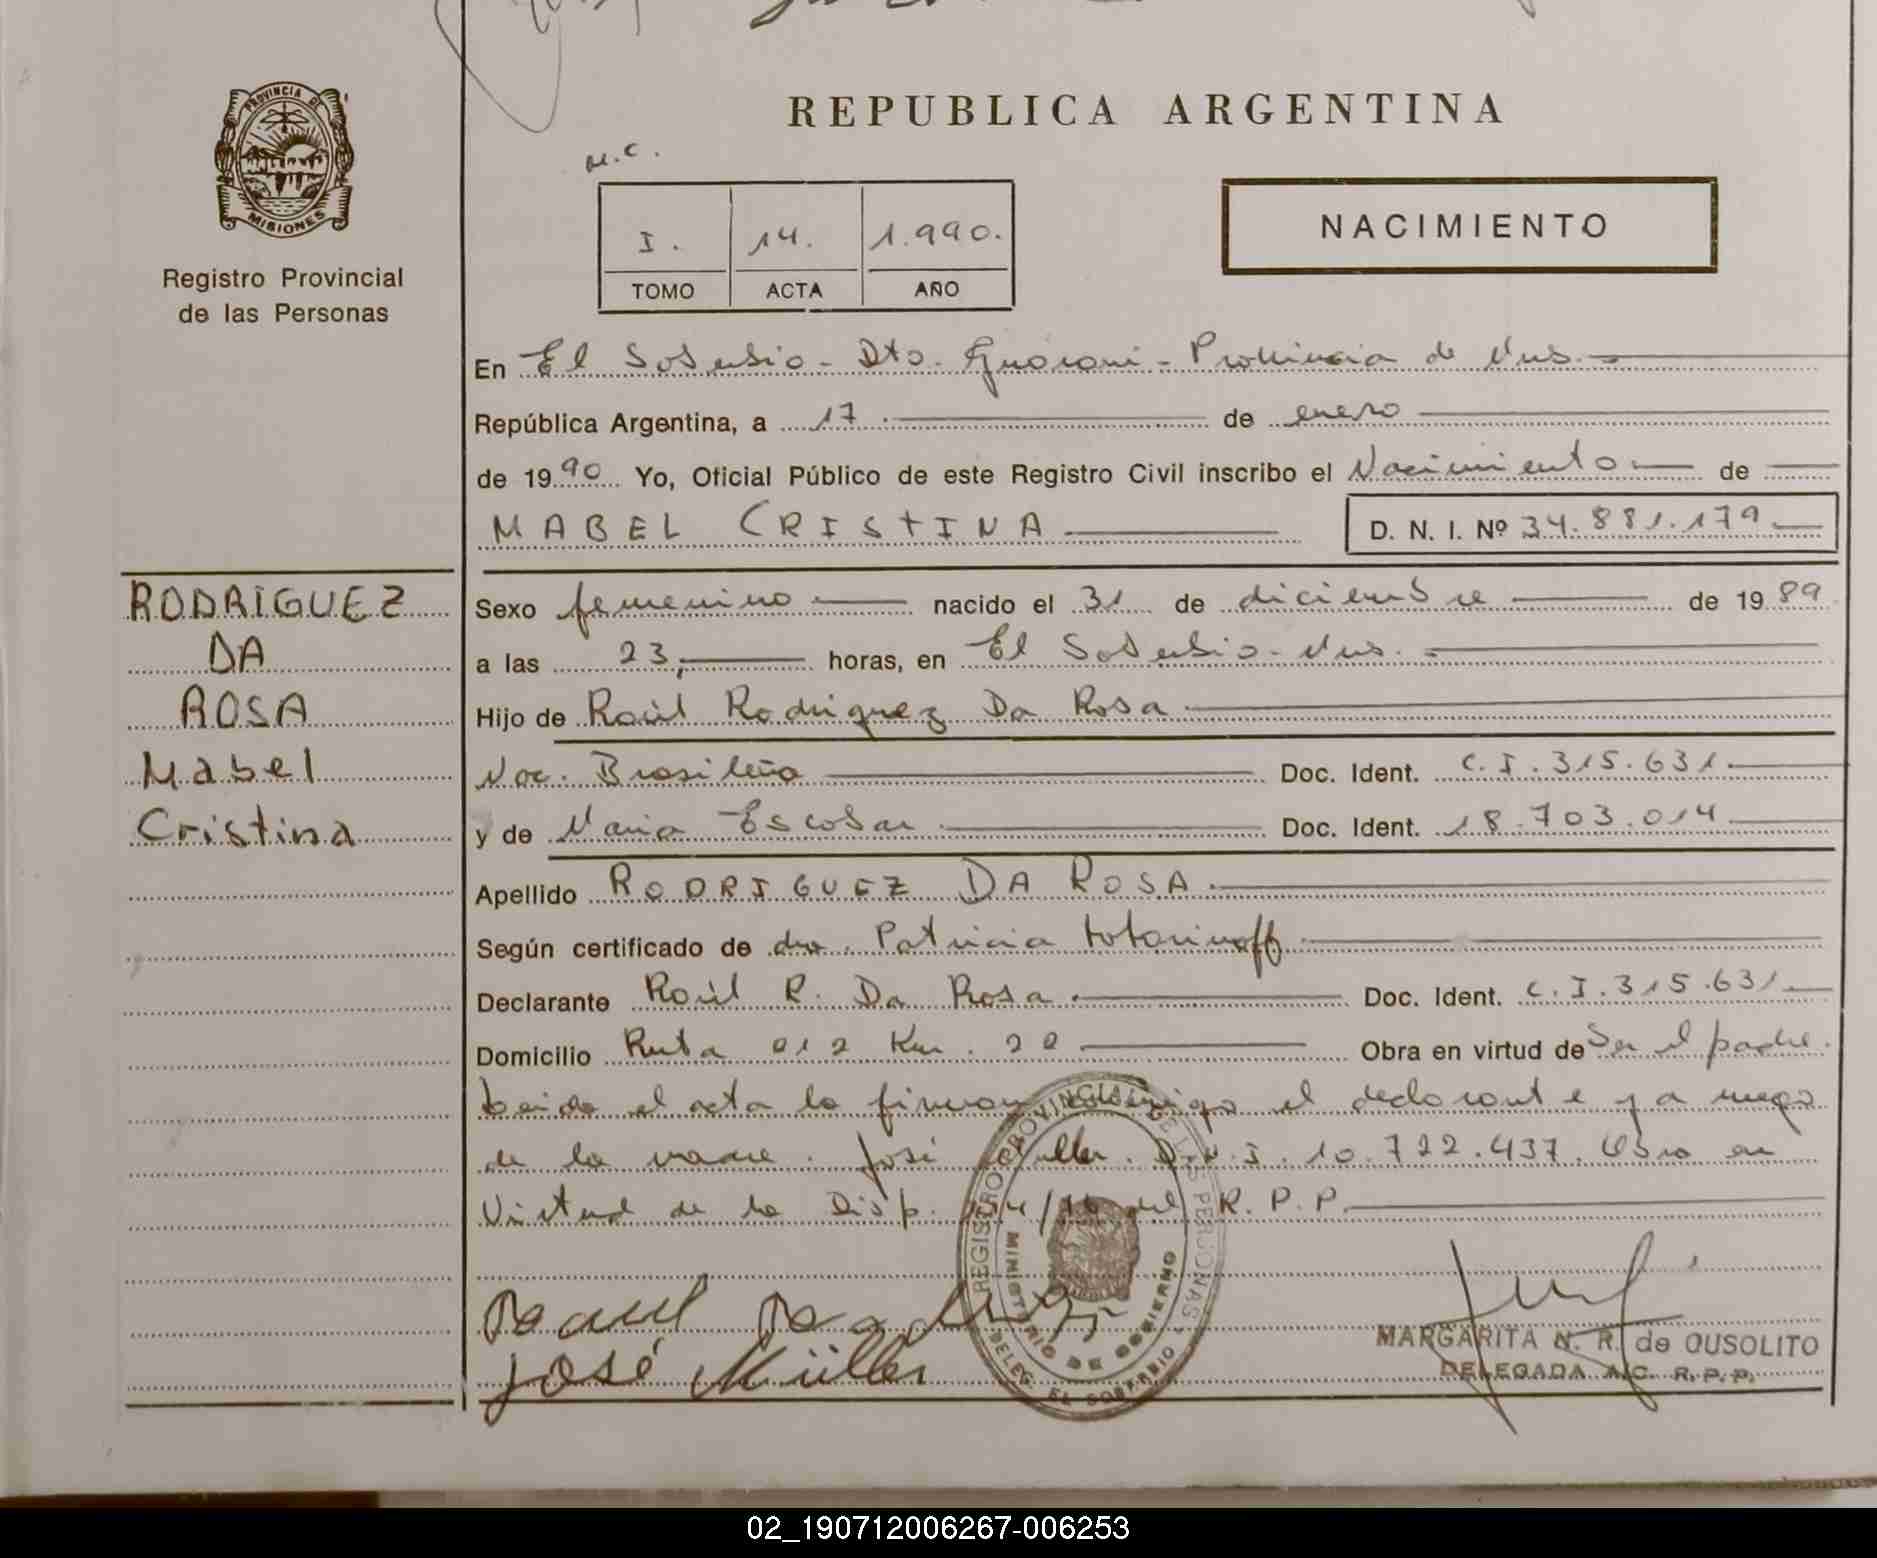 PROVINCIA DE
MISIONES
Registro Provincial
de las Personas
REPUBLICA ARGENTINA
M.C.
I. 14. 1.990.
TOMO ACTA AÑO
NACIMIENTO
En El Soberbio - Dto. Guarani - Provincia de Mns.
República Argentina, a 17 de enero
de 1990 Yo, Oficial Público de este Registro Civil inscribo el Nacimiento de
MABEL CRISTINA D. N. I. Nº 34.881.179
RODRIGUEZ
DA
ROSA
Mabel
Cristina
Sexo femenino nacido el 31 de diciembre de 1989
a las 23, horas, en El Soberbio - Mns.
Hijo de Raúl Rodriguez Da Rosa
Nac. Brasileña Doc. Ident. C.I. 315.631.
y de Maria Escobar Doc. Ident. 18.703.014
Apellido RODRIGUEZ DA ROSA
Según certificado de dra. Patricia
Declarante Raúl R. Da Rosa Doc. Ident. C.I. 315.631
Domicilio Ruta 012 Km. 20 Obra en virtud de Ser el padre.
Leida el acta la firman conmigo el declarante y a ruego
de la madre. José Muller. D.N.I. 10.722.437. Obra en
Virtud de la Disp. del R.P.P.
REGISTRO PROVINCIAL DE LAS PERSONAS
MINISTERIO DE GOBIERNO
DELEG. EL SOBERBIO
Raul Rodriguez
José Müller
MARGARITA N. R. de OUSOLITO
DELEGADA A/C. R.P.P.
02_190712006267-006253